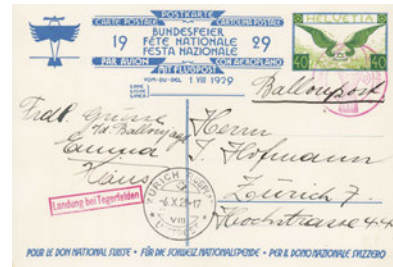 POSTKARTE
CARTE POSTALE CARTOLINA POSTALE
BUNDESFEIER
19 FÊTE NATIONALE 29
FESTA NAZIONALE
PAR AVION CON AEROPLANO
MIT FLUGPOST
VOM-DU-DEL 1 VIII 1929
LINIE
LIGNE
LINEA
HELVETIA
40 40
Ballonpost
Frdl. Grüsse
v/d. Ballonjagd
Emma
Hans
Landung bei Tegerfelden
ZÜRICH FLUGPL.
-6.X.29-17
VIII
Herrn
J. Hofmann
Zürich 7.
Hochstrasse 44
POUR LE DON NATIONAL SUISSE • FÜR DIE SCHWEIZ. NATIONALSPENDE • PER IL DONO NAZIONALE SVIZZERO